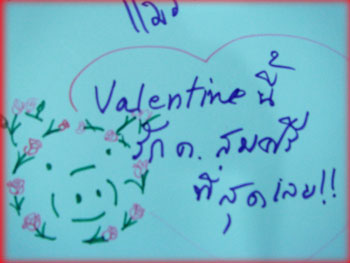 Valentine นี้
รัก ด. สุมาลี
ที่สุดเลย!!